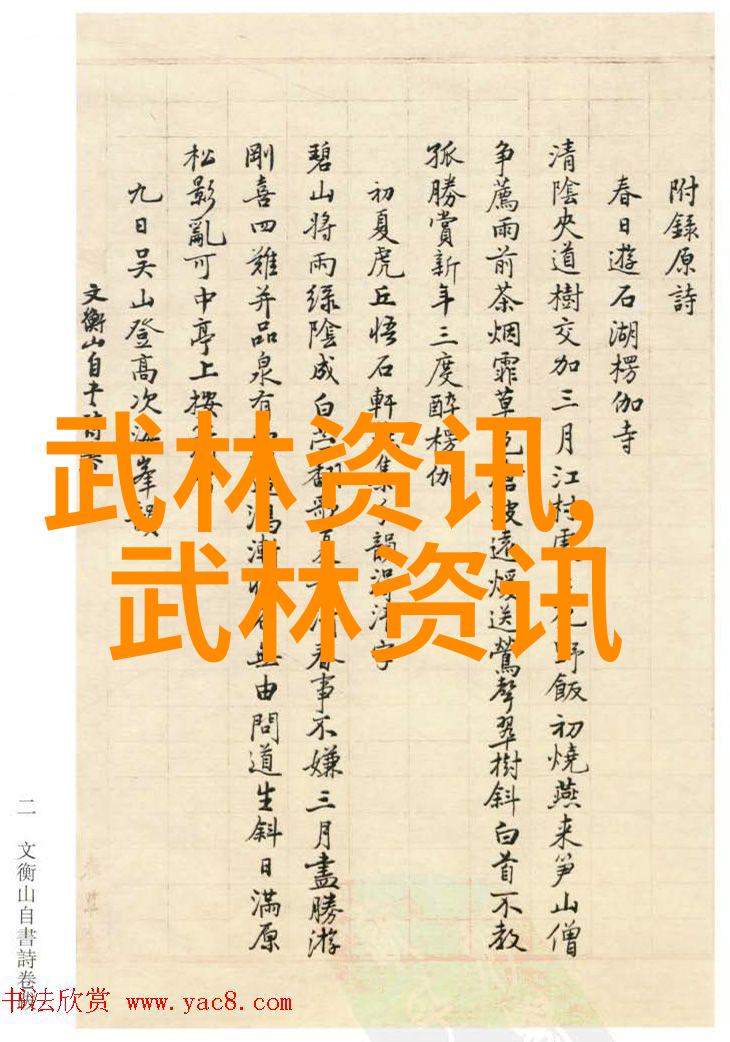 附錄原詩
春日遊石湖楞伽寺
清陰夾道樹交加三月江村野飯初燒燕来笋山僧
争薦雨前茶烟霏草遠煖送鶯聲翠樹斜白首不教
孤勝賞新年三度醉楞伽
初夏虎丘悟石軒集韻得清字
碧山將雨綠陰成白苧翻歌夏春事不嫌三月盡勝游
剛喜四難并品泉有無由問道生斜日滿原
松影亂可中亭上
九日吳山登高次海峯韻
文衡山自书詩卷
二 文衡山自書詩卷跋
武林资讯,
武林资讯
书法欣赏 www.yac8.com